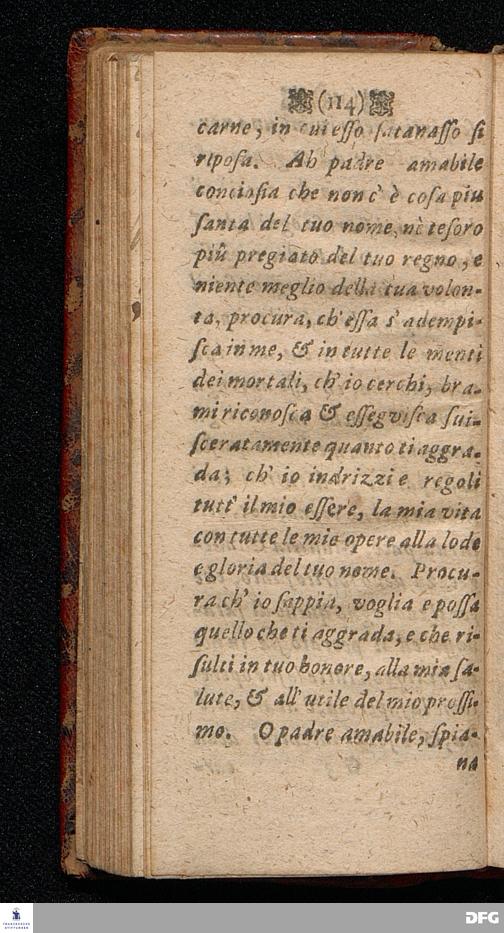 (114)
carne, in cui esso satanasso si
riposa. Ah padre amabile
conciosia che non c' è cosa piu
santa del tuo nome, nè tesoro
più pregiato del tuo regno, e
niente meglio della tua volon-
ta, procura, ch' essa s' adempi-
sca in me, & in tutte le menti
dei mortali, ch' io cerchi, bra-
mi riconosca & essegvisca svi-
sceratamente quanto ti aggra-
da; ch' io indrizzi e regoli
tutt' il mio essere, la mia vita
con tutte le mie opere alla lode
e gloria del tuo nome. Procu-
ra ch' io sappia, voglia e possa
quello che ti aggrada, e che ri-
sulti in tuo honore, alla mia sa-
lute, & all' utile del mio prossi-
mo. O padre amabile, spia-
na
FRANCKESCHE
STIFTUNGEN
DFG